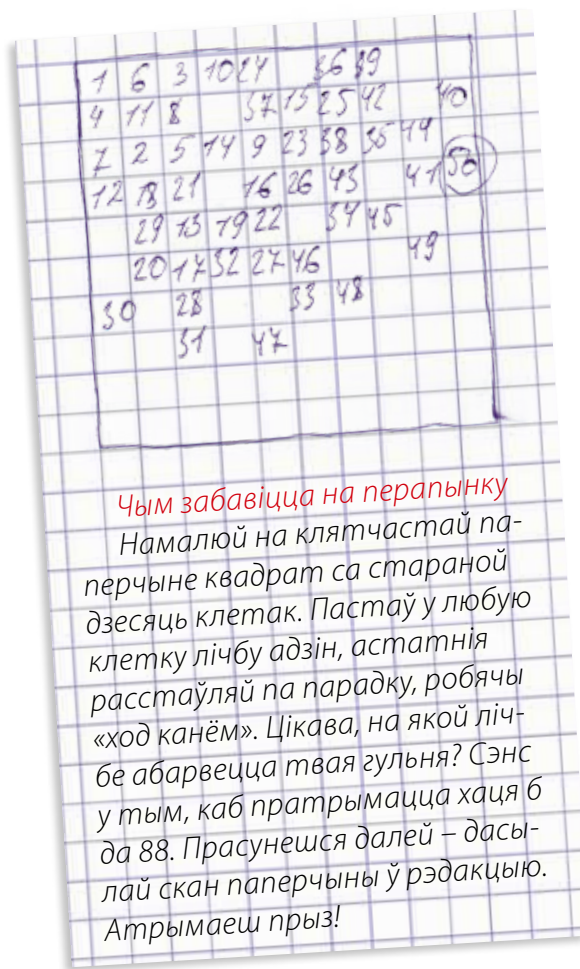 1 6 3 10 24 36 39
4 11 8 37 15 25 42 40
7 2 5 14 9 23 38 35 44
12 18 21 16 26 43 41 50
29 13 19 22 34 45
20 17 32 27 46 49
30 28 33 48
31 47
Чым забавіцца на перапынку
Намалюй на клятчастай па-
перчыне квадрат са стараной
дзесяць клетак. Пастаў у любую
клетку лічбу адзін, астатнія
расстаўляй па парадку, робячы
«ход канём». Цікава, на якой ліч-
бе абарвецца твая гульня? Сэнс
у тым, каб пратрымацца хаця б
да 88. Прасунешся далей – дасы-
лай скан паперчыны ў рэдакцыю.
Атрымаеш прыз!